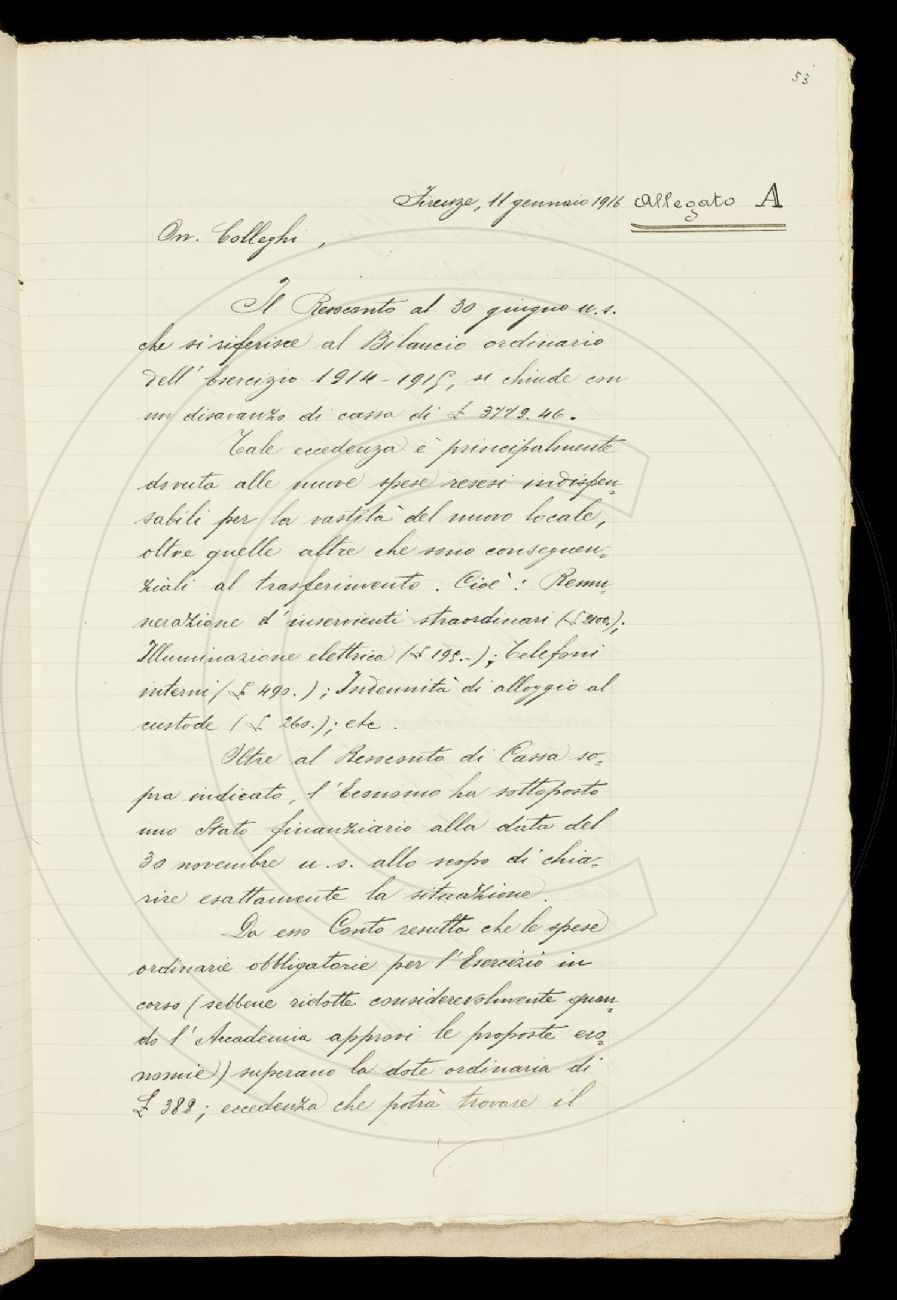 53
Firenze, 11 gennaio 1916 Allegato A
On. Colleghi,
Il Resoconto al 30 giugno u.s.
che si riferisce al Bilancio ordinario
dell'Esercizio 1914-1915, si chiude con
un disavanzo di cassa di £ 3779.46.
Tale eccedenza è principalmente
dovuta alle nuove spese resesi indispen-
sabili per la vastità del nuovo locale,
oltre quelle altre che sono conseguen-
ziali al trasferimento. Cioè: Remu-
nerazione d'inservienti straordinari (£ 2100.);
Illuminazione elettrica (£ 195.-); Telefoni
interni (£ 490.); Indennità di alloggio al
custode (£ 260.); etc.
Oltre al Resoconto di Cassa so-
pra indicato, l'Economo ha sottoposto
uno Stato finanziario alla data del
30 novembre u.s. allo scopo di chia-
rire esattamente la situazione.
Da esso Conto resulta che le spese
ordinarie obbligatorie per l'Esercizio in
corso (sebbene ridotte considerevolmente quan-
do l'Accademia approvi le proposte eco-
nomie) superano la dote ordinaria di
£ 382; eccedenza che potrà trovare il